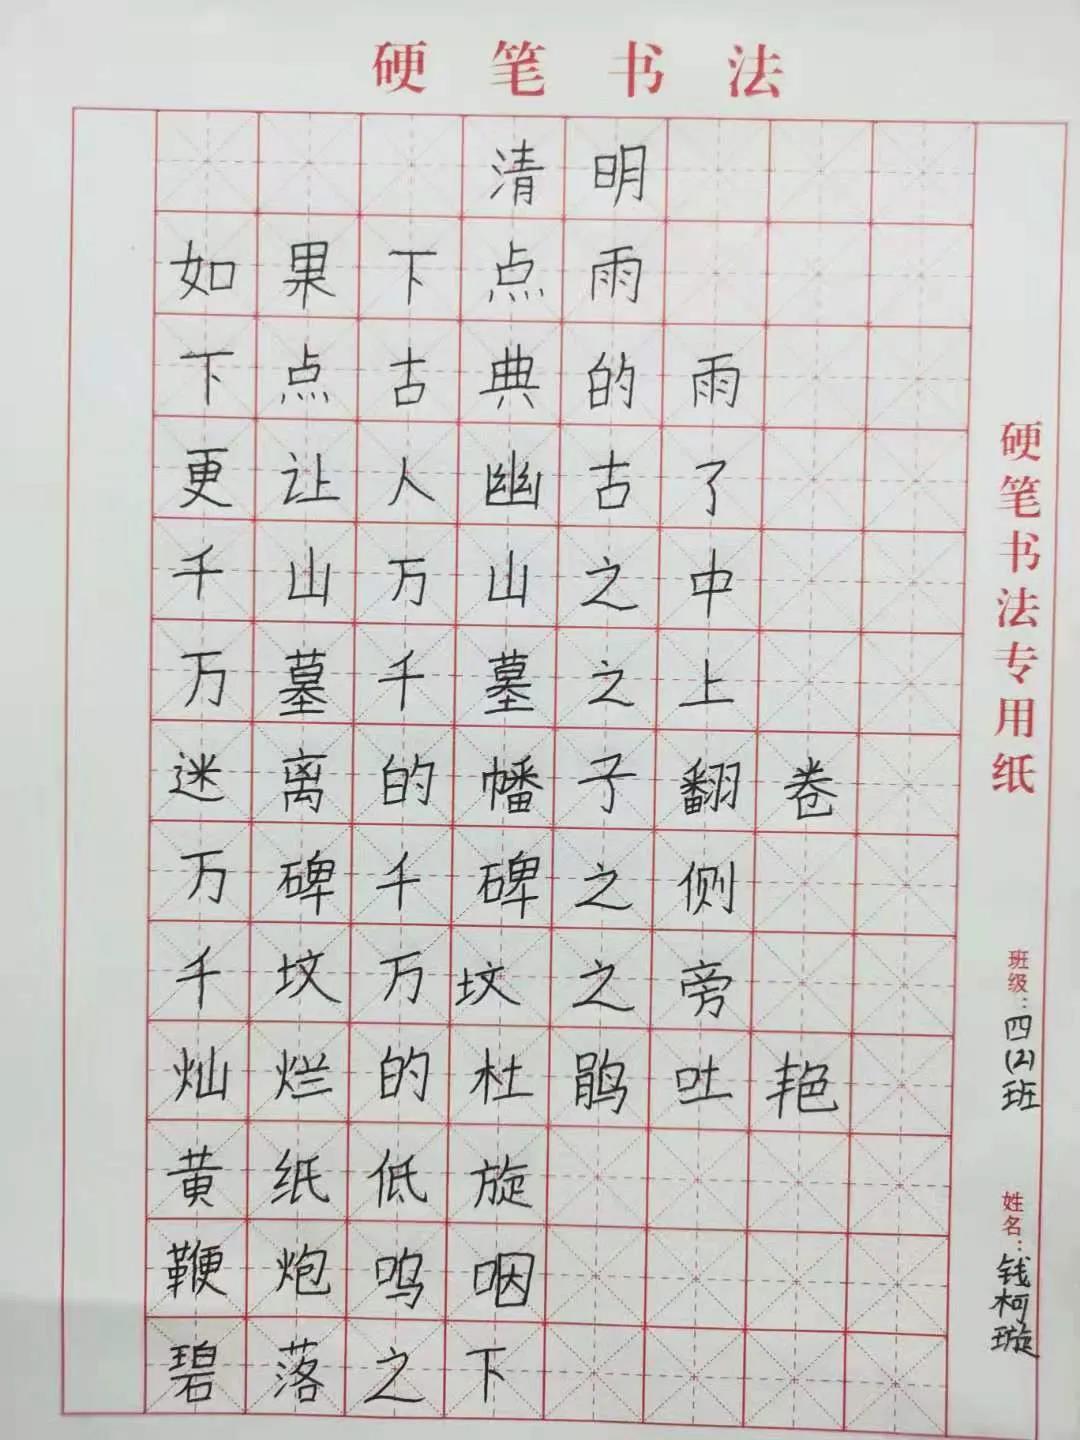 硬笔书法
清明
如果下点雨
下点古典的雨
更让人幽古了
千山万山之中
万墓千墓之上
迷离的幡子翻卷
万碑千碑之侧
千坟万坟之旁
灿烂的杜鹃吐艳
黄纸低旋
鞭炮呜咽
碧落之下
硬笔书法专用纸
班级：四(2)班
姓名：钱柯璇